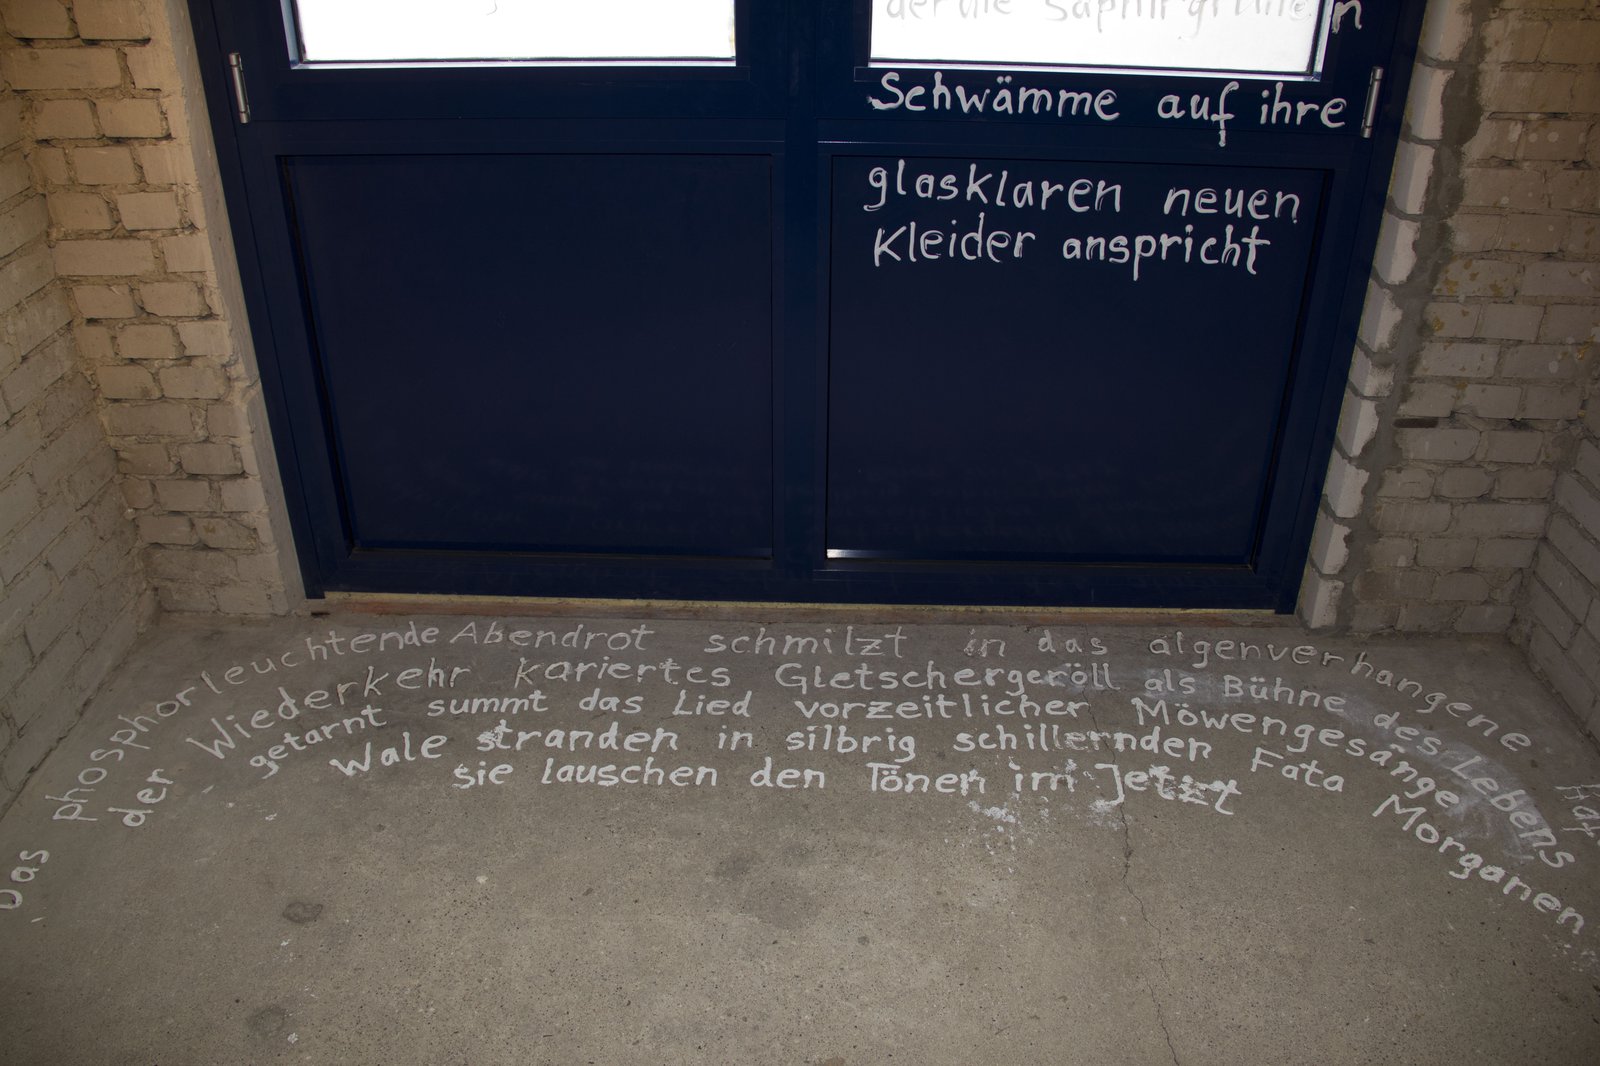 der die Saphirgrünen
Schwämme auf ihre
glasklaren neuen
Kleider anspricht
Das phosphorleuchtende Abendrot schmilzt in das algenverhangene
der Wiederkehr kariertes Gletschergeröll als Bühne des Lebens
getarnt summt das Lied vorzeitlicher Möwengesänge
Wale stranden in silbrig schillernden Fata Morganen
sie lauschen den Tönen im Jetzt